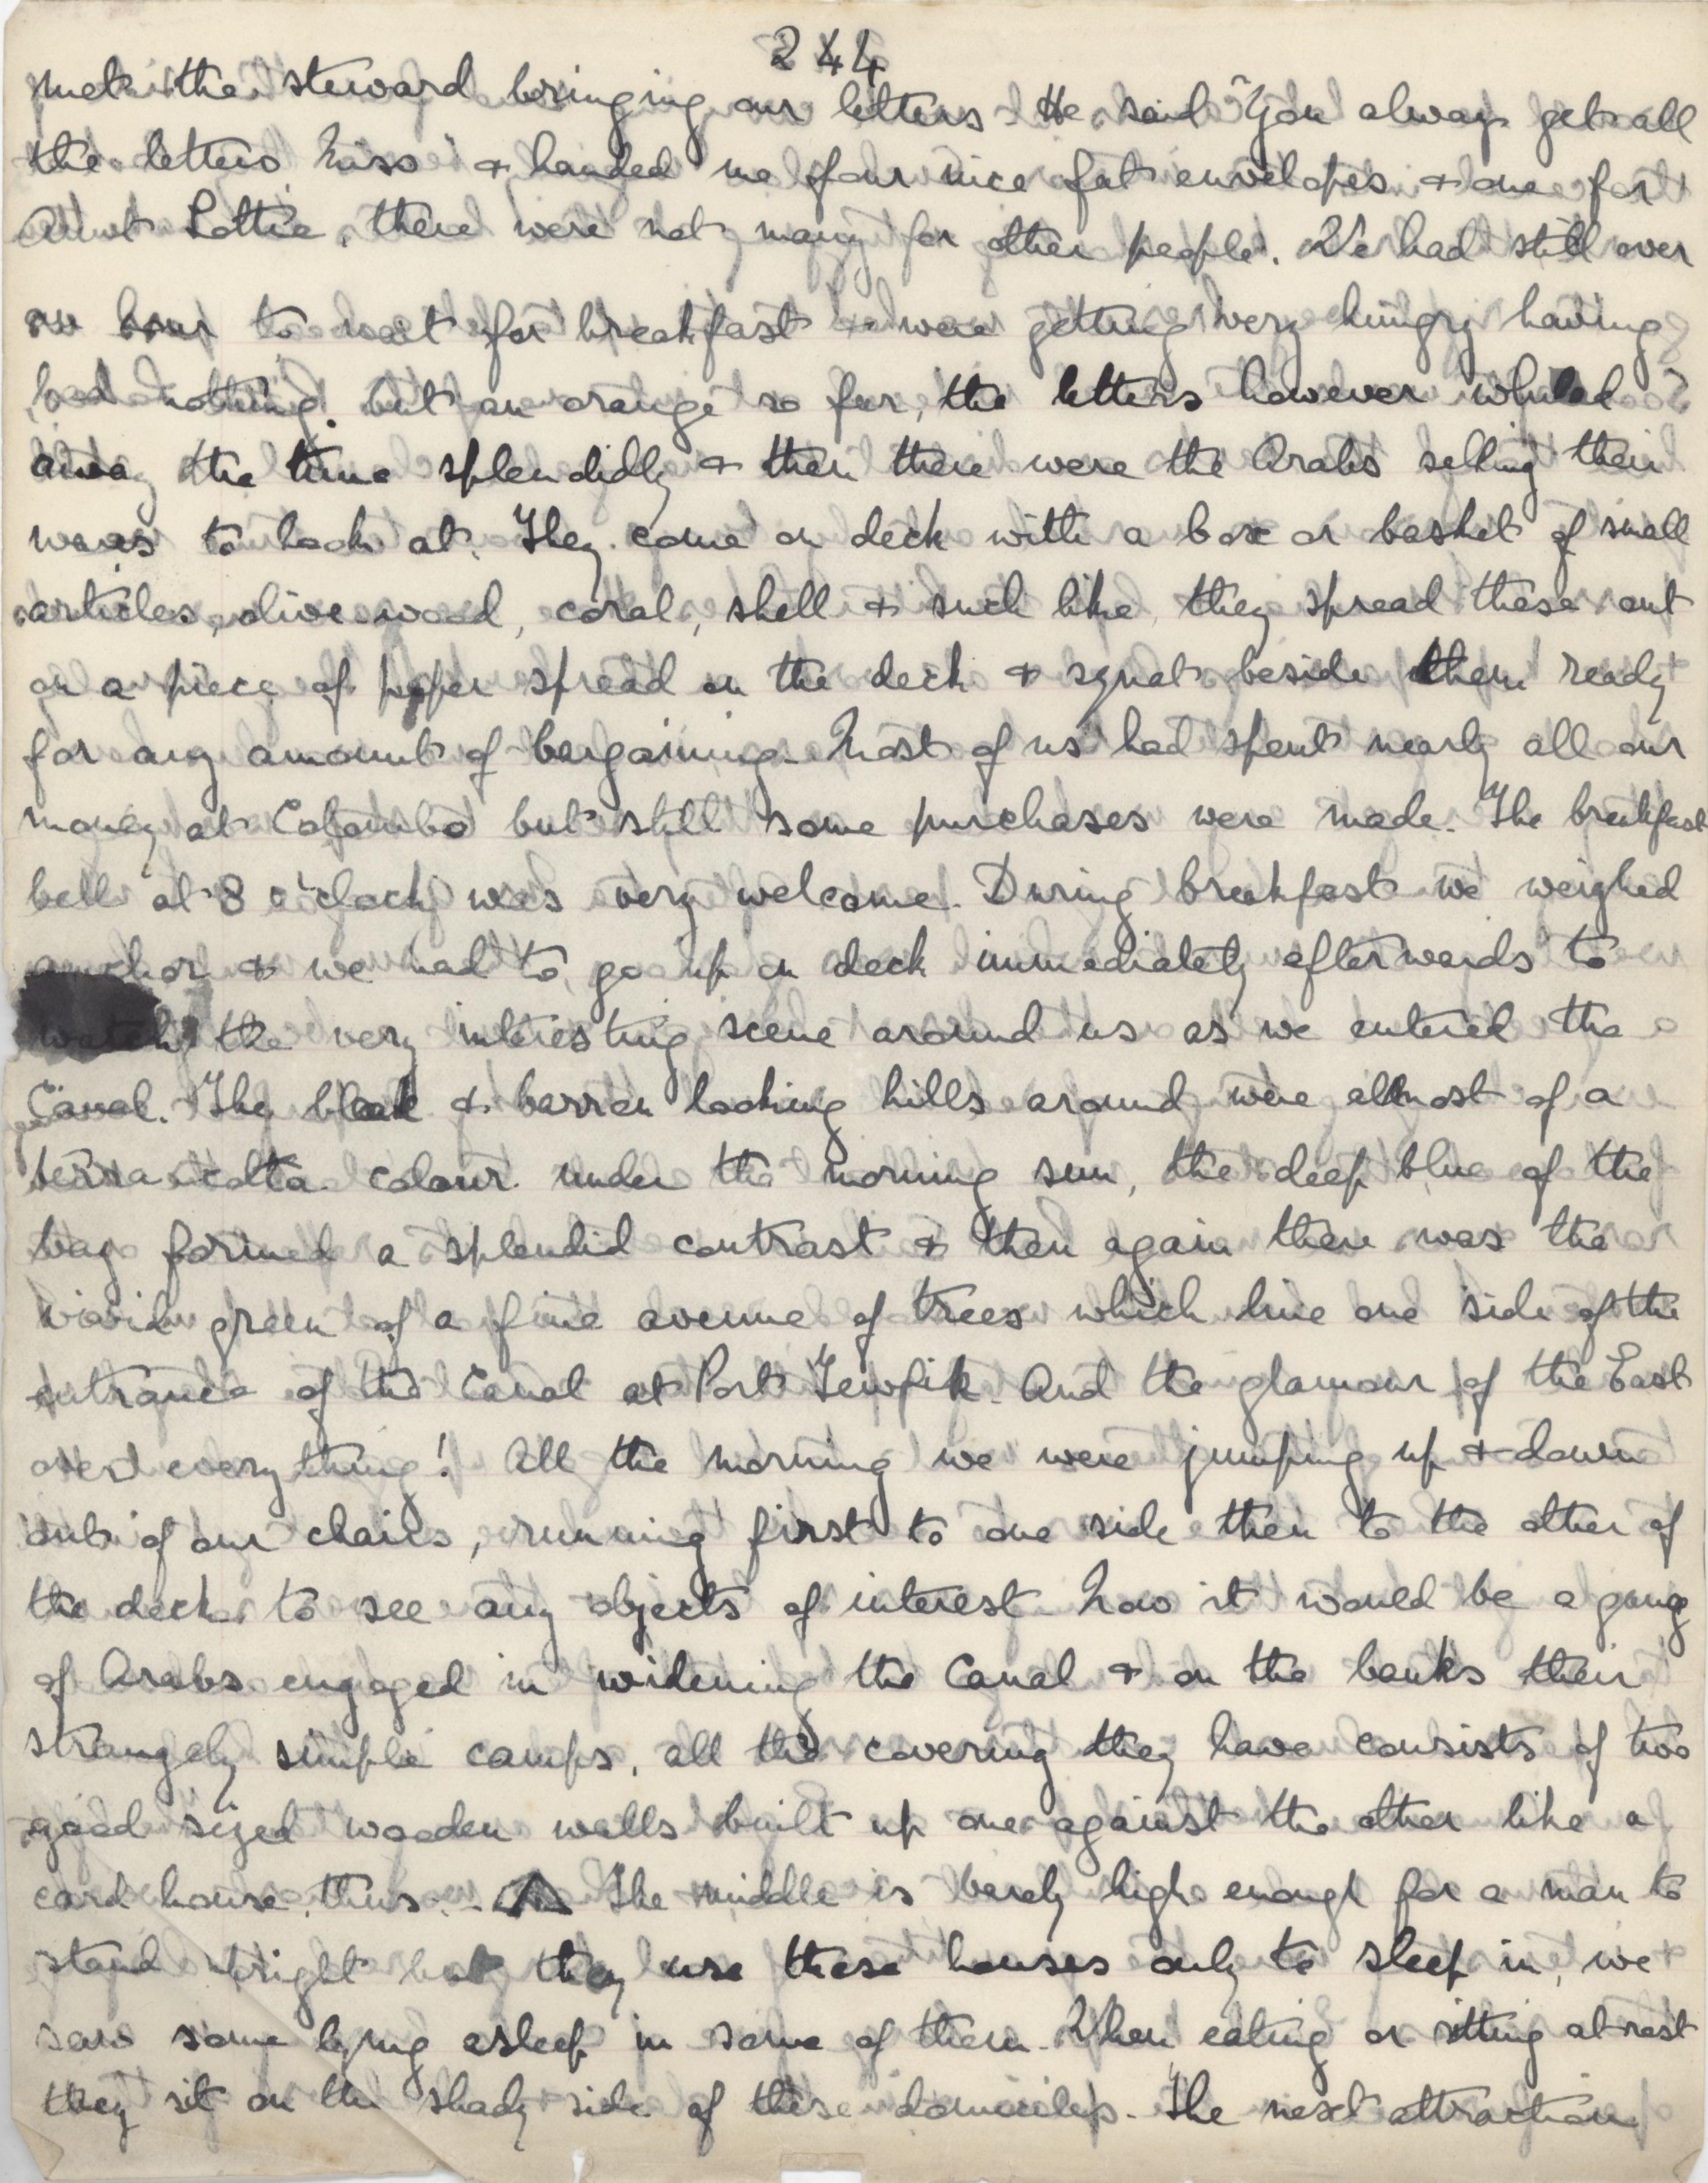 244
met the steward bringing our letters - He said "You always get all
the letters Miss" & handed me four nice fat envelopes & one for
Aunt Lottie, there were not many for other people. We had still over
an hour to wait for breakfast & were getting very hungry having
had nothing but an orange so far, the letters however whiled
away the time splendidly & then there were the Arabs selling their
wares to look at. They come on deck with a box or basket of small
articles, olive wood, coral, shell & such like, they spread these out
on a piece of paper spread on the deck & squat beside them ready
for any amount of bargaining. Most of us had spent nearly all our
money at Colombo but still some purchases were made. The breakfast
bell at 8 o'clock was very welcome. During breakfast we weighed
anchor & we had to go up on deck immediately afterwards to
watch the very interesting scene around us as we entered the
Canal. The bleak & barren looking hills around were allmost of a
terra cotta colour under the morning sun, the deep blue of the
bay formed a splendid contrast & then again there was the
vivid green of a fine avenue of trees which line one side of the
entrance of the Canal at Port Tewfik. And the glamour of the East
over everything! All the morning we were jumping up & down
out of our chairs, running first to one side then to the other of
the deck to see any objects of interest. Now it would be a gang
of Arabs engaged in widening the Canal & on the banks their
strangely simple camps, all the covering they have consists of two
good sized wooden walls built up one against the other like a
card house, thus - The middle is barely high enough for a man to
stand upright but they use these houses only to sleep in, we
saw some lying asleep in some of them. When eating or sitting at rest
they sit on the shady side of these domiciles. The next attraction